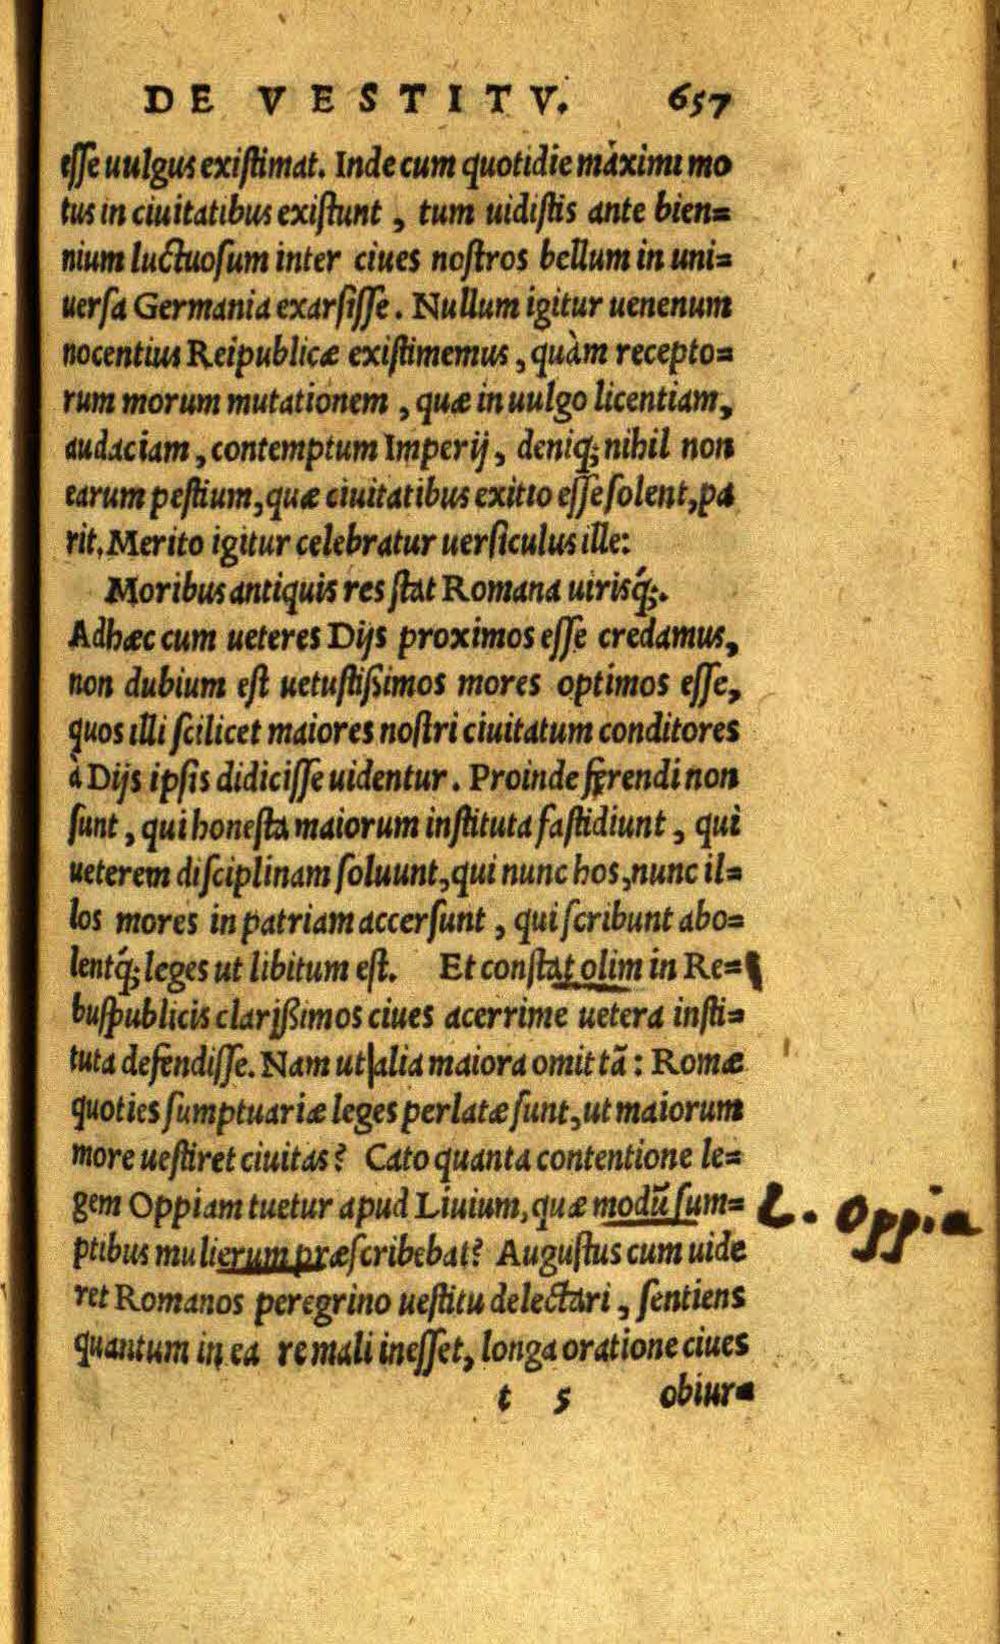 DE VESTITV. 657
esse uulgus existimat. Inde cum quotidie màximi mo
tus in ciuitatibus existunt, tum uidistis ante bien=
nium luctuosum inter ciues nostros bellum in uni=
uersa Germania exarsisse. Nullum igitur uenenum
nocentius Reipublicæ existimemus, quàm recepto=
rum morum mutationem, quæ in uulgo licentiam,
audaciam, contemptum Imperij, deniq; nihil non
earum pestium, quæ ciuitatibus exitio esse solent, pa
rit. Merito igitur celebratur uersiculus ille:
Moribus antiquis res stat Romana uirisq́;.
Adhæc cum ueteres Dijs proximos esse credamus,
non dubium est uetustißimos mores optimos esse,
quos illi scilicet maiores nostri ciuitatum conditores
à Dijs ipsis didicisse uidentur. Proinde ferendi non
sunt, qui honesta maiorum instituta fastidiunt, qui
ueterem disciplinam soluunt, qui nunc hos, nunc il=
los mores in patriam accersunt, qui scribunt abo=
lentq́; leges ut libitum est. Et constat olim in Re=
buspublicis clarißimos ciues acerrime uetera insti=
tuta defendisse. Nam ut alia maiora omittā: Romæ
quoties sumptuariæ leges perlatæ sunt, ut maiorum
more uestiret ciuitas? Cato quanta contentione le=
gem Oppiam tuetur apud Liuium, quæ modū sum=
ptibus mulierum præscribebat? Augustus cum uide
ret Romanos peregrino uestitu delectari, sentiens
quantum in ea re mali inesset, longa oratione ciues
t 5 obiur=
L. Oppia